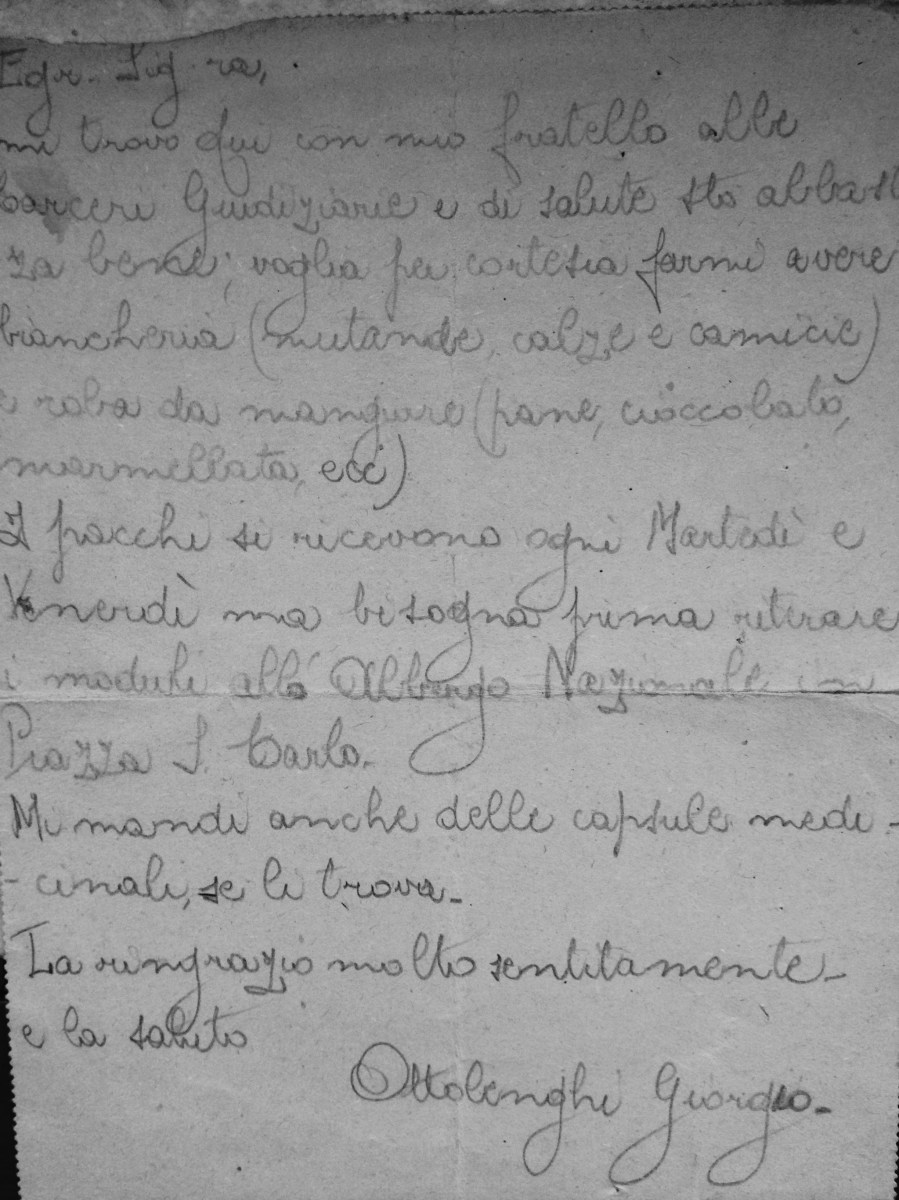 Egr. Sig.ra,
mi trovo qui con mio fratello alle
Carceri Giudiziarie e di salute sto abbast
za bene; voglia per cortesia farmi avere
biancheria (mutande, calze e camicie)
e roba da mangiare (pane, cioccolato,
marmellata, ecc)
I pacchi si ricevono ogni Martedì e
Venerdì ma bisogna prima ritirare
i moduli allo Albergo Nazionale in
Piazza S. Carlo.
Mi mandi anche delle capsule medi-
-cinali, se li trova.
La ringrazio molto sentitamente
e la saluto
Ottolenghi Giorgio.